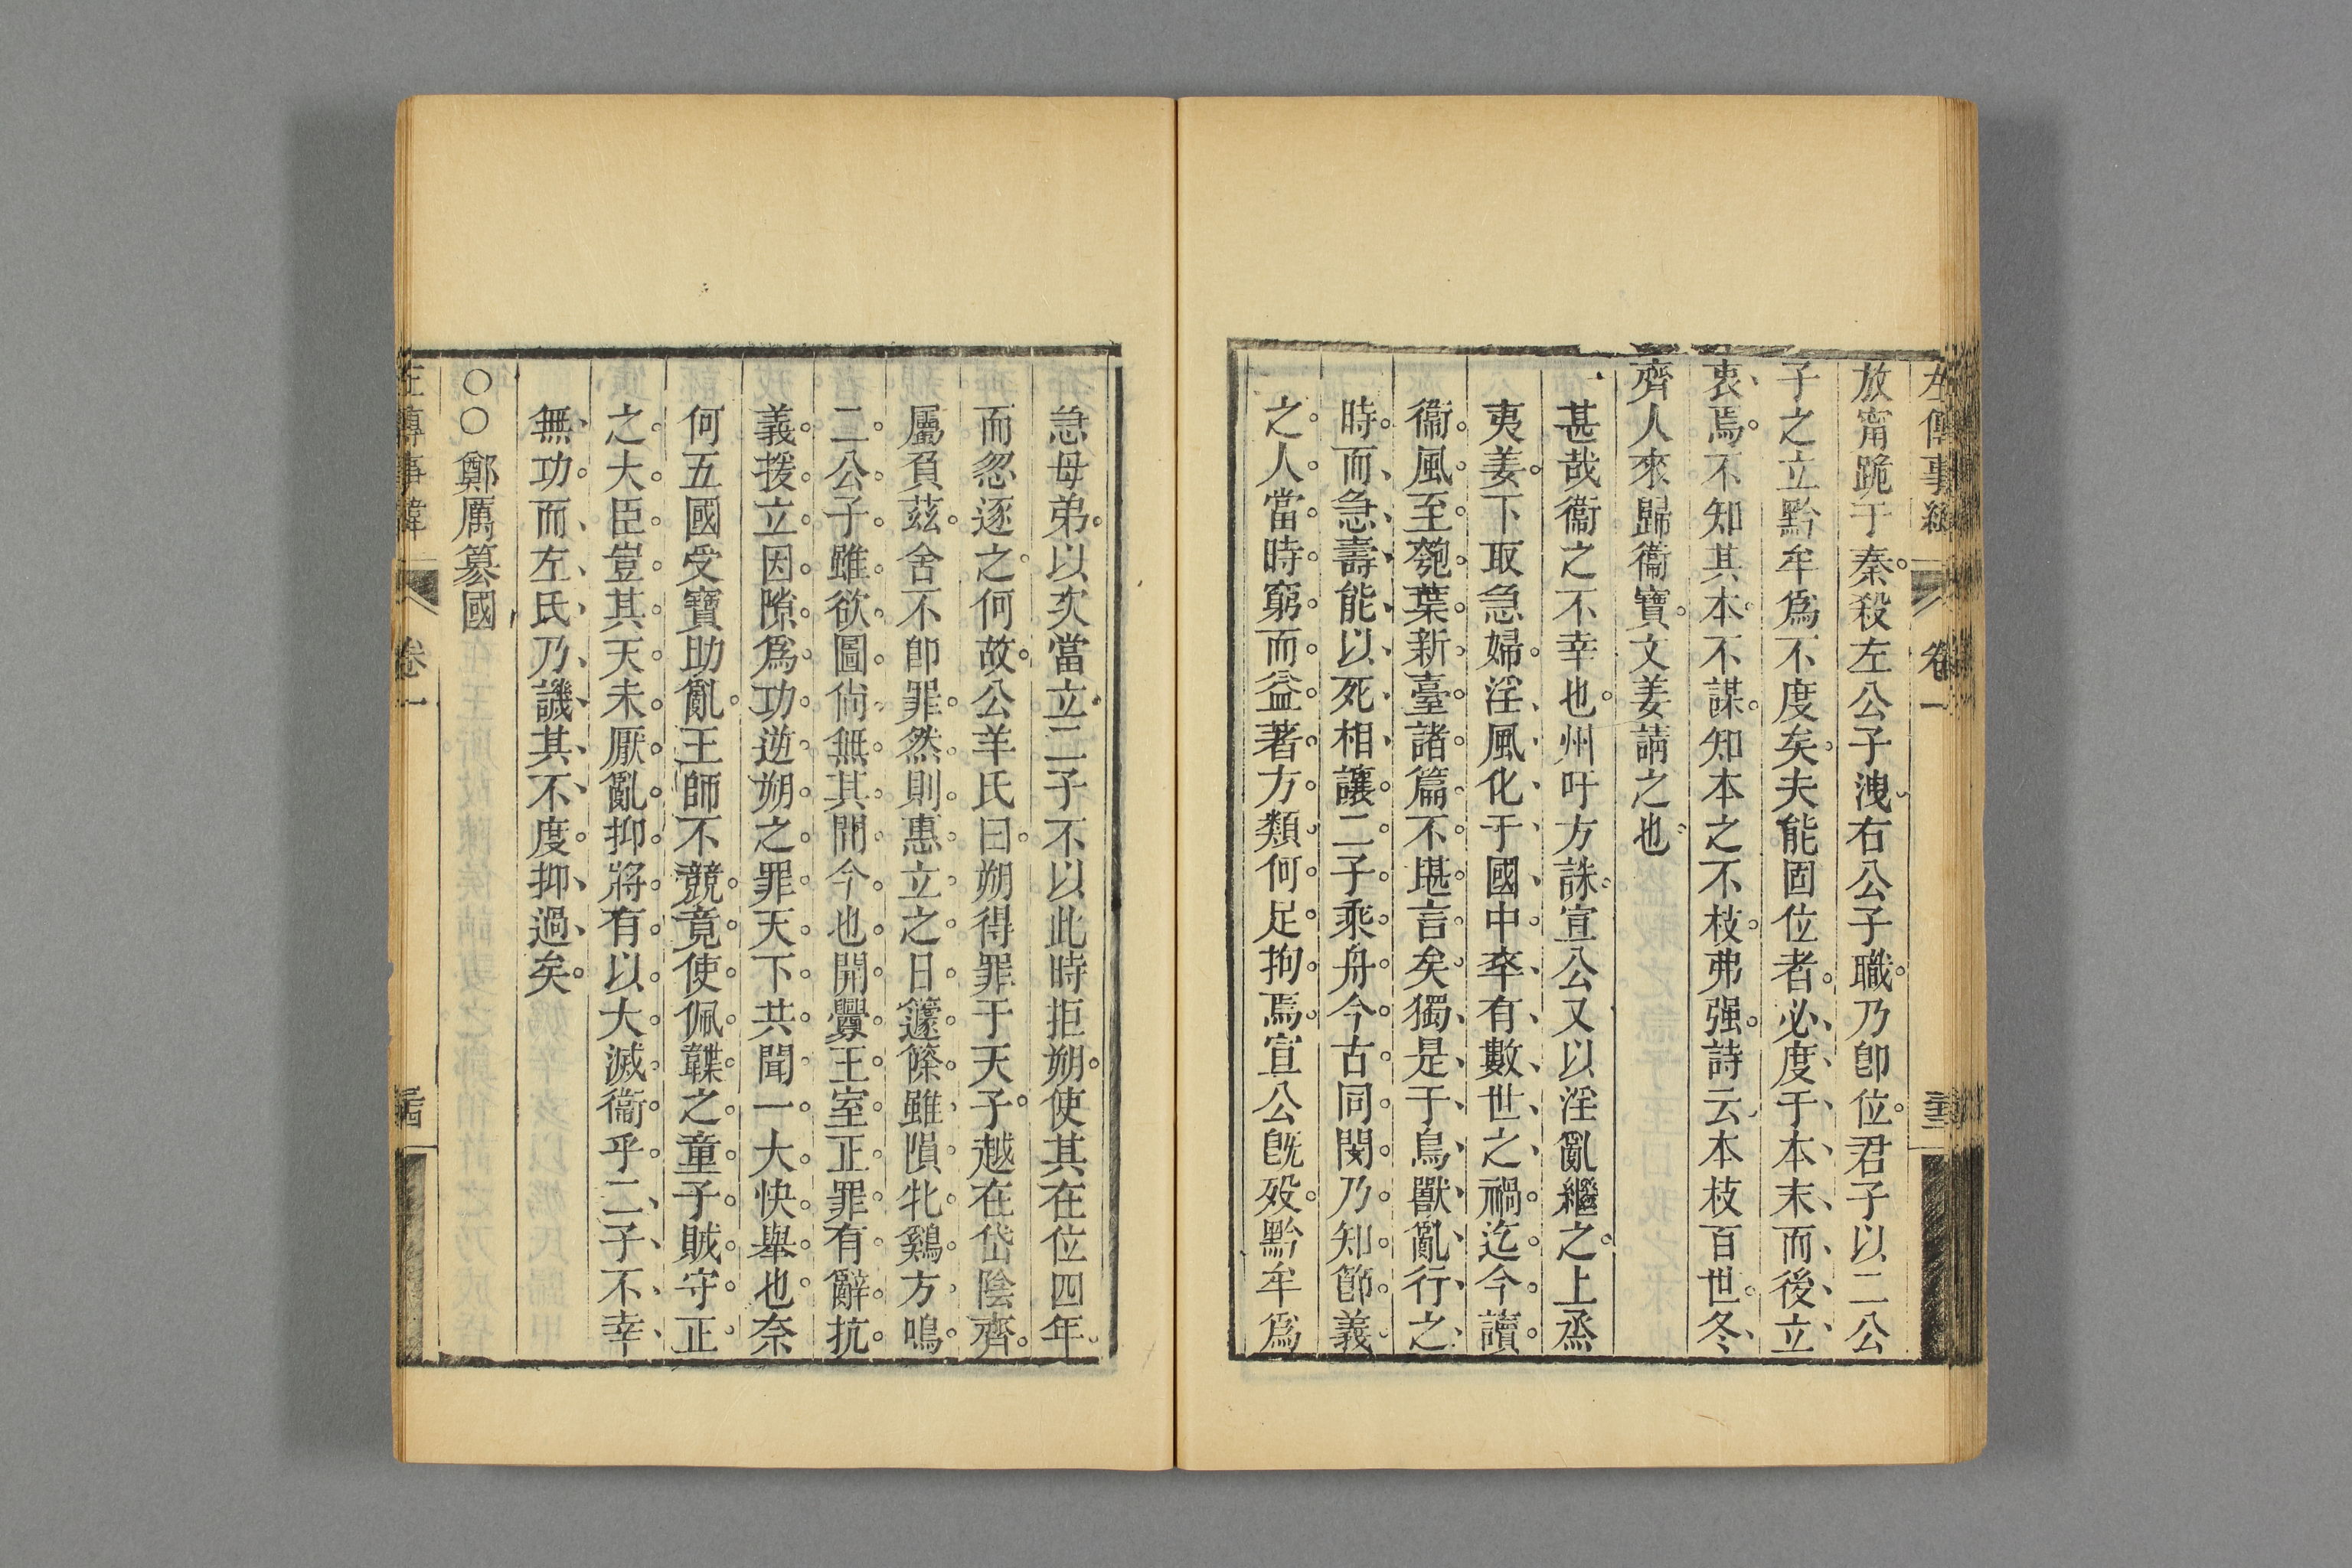 左傳事緯 卷一
放甯跪于秦殺左公子洩右公子職乃卽位君子以二公
子之立黔牟爲不度矣夫能固位者必度于本末而後立
衷焉不知其本不謀知本之不枝弗强詩云本枝百世冬
齊人來歸衞寶文姜請之也
甚哉衞之不幸也州吁方誅宣公又以淫亂繼之上烝
夷姜下取急婦淫風化于國中卒有數世之禍迄今讀
衞風至匏葉新臺諸篇不堪言矣獨是于鳥獸亂行之
時而急壽能以死相讓二子乘舟今古同閔乃知節義
之人當時窮而益著方類何足拘焉宣公旣歿黔牟爲
急母弟以次當立二子不以此時拒朔使其在位四年
而忽逐之何故公羊氏曰朔得罪于天子越在岱陰齊
屬負茲舍不卽罪然則惠立之日籧篨雖隕牝鷄方鳴
二公子雖欲圖尙無其間今也開釁王室正罪有辭抗
義援立因隙爲功逆朔之罪天下共聞一大快舉也奈
何五國受寶助亂王師不競竟使佩韘之童子賊守正
之大臣豈其天未厭亂抑將有以大滅衞乎二子不幸
無功而左氏乃譏其不度抑過矣
○○鄭厲篡國
左傳事緯 卷一